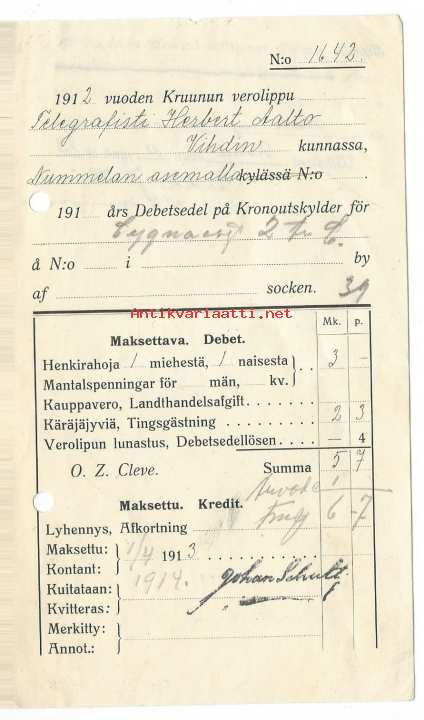 N:o 1642.
1912 vuoden Kruunun verolippu
Telegrafisti Herbert Aalto
Vihdin kunnassa,
Nummelan asemalla kylässä N:o
191 års Debetsedel på Kronoutskylder för
Cygnaeusg 2
å N:o i by
af socken. 39
Antikvariaatti.net
Mk. p.
Maksettava. Debet.
Henkirahoja 1 miehestä, 1 naisesta 3 –
Mantalspenningar för män, kv.
Kauppavero, Landthandelsafgift
Käräjäjyviä, Tingsgästning 2 3
Verolipun lunastus, Debetsedellösen — 4
O. Z. Cleve. Summa 5 7
1
Maksettu. Kredit.
Lyhennys, Afkortning 6 7
Maksettu: 1/4 1913
Kontant:
Kuitataan: 1914.
Johan Schult
Kvitteras:
Merkitty:
Annot.: